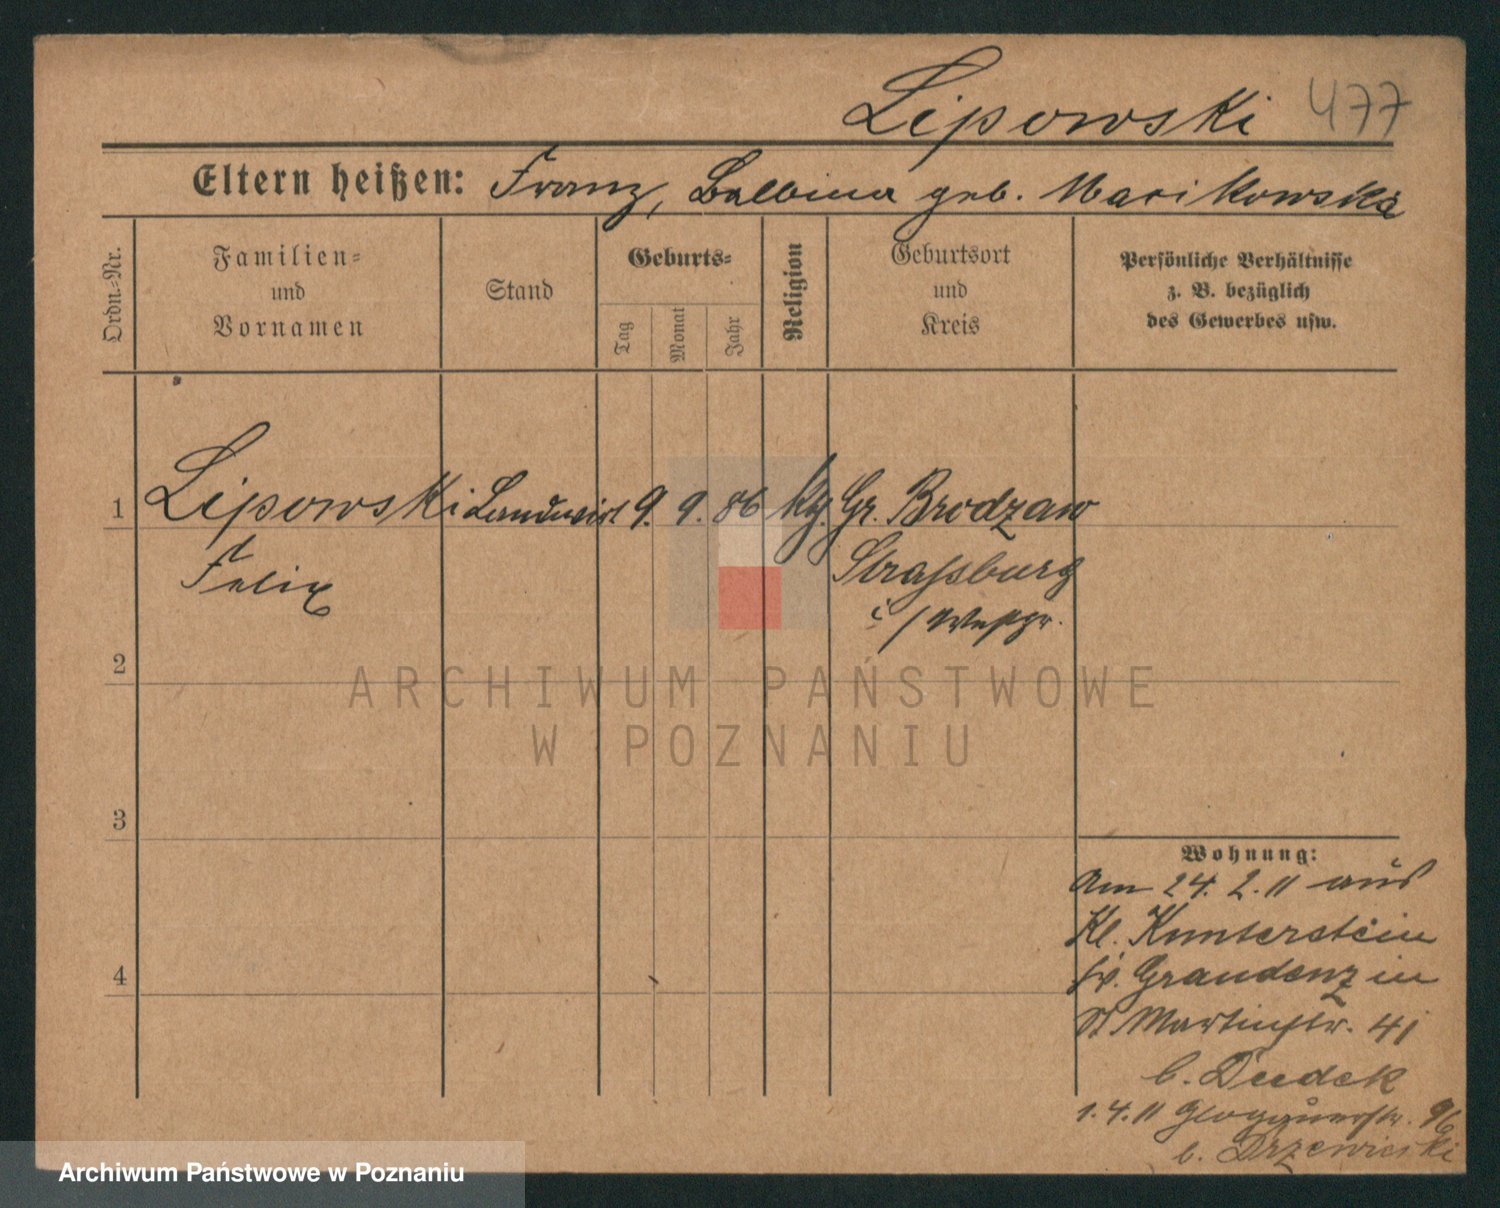 Lipowski 477
Eltern heißen: Franz, Balbina geb. Marikowska
Ordn.=Nr.
Familien=
und
Vornamen
Stand
Geburts=
Tag
Monat
Jahr
Religion
Geburtsort
und
Kreis
Persönliche Verhältnisse
z. B. bezüglich
des Gewerbes usw.
1 Lipowski Landwirt 9. 9. 86 kg. Gr. Brodzaw
Felix Straßburg
i/Westpr.
2
3
4
Wohnung:
Am 24. 2. 11 aus
Kl. Kunterstein
Kr. Graudenz in
St Martinstr. 41
b. Dudek
1. 4. 11 Glogauerstr. 96
b. Drzewiecki
ARCHIWUM PAŃSTWOWE
W POZNANIU
Archiwum Państwowe w Poznaniu